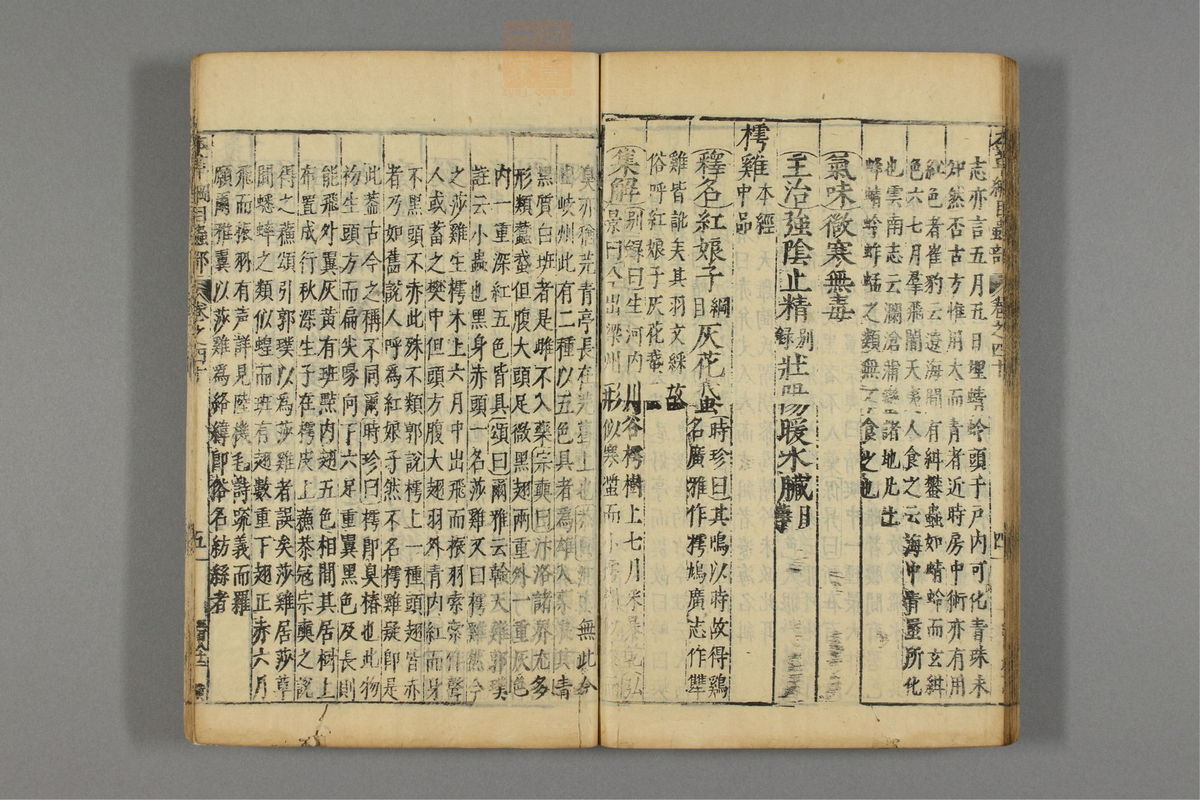 志亦言五月五日埋蜻蛉頭于戶内可化青珠未
知然否古方惟用大而青者近時房中術亦有用
紅色者崔豹云遼海間有紺蠜蟲如蜻蛉而玄紺
色六七月羣飛闇天夷人食之云海中青蜑所化
也雲南志云瀾滄蒲蠻諸地凡土
蜂蜻蛉蚱蜢之類無不食之也
氣味微寒無毒
主治強陰止精別錄壯陽暖水臟日
樗雞本經中品
釋名紅娘子綱目灰花蛾時珍曰其鳴以時故得鷄
名廣雅作樗鳩廣志作㩦
雞皆訛矣其羽文綵故
俗呼紅娘子灰花蛾云
集解別錄曰生河内川谷樗樹上七月采暴乾弘
景曰今出梁州形似寒螿而小
臭亦猶芫青亭長在芫葛上也 無此今
出岐州此有二種以五色具者為雄入藥良其青
黑質白斑者是雌不入藥宗奭曰汴洛諸界尤多
形類蠶蛾但腹大頭足微黑翅兩重外一重灰色
内一重深紅五色皆具頌曰爾雅云螒天雞郭璞
註云小蟲也黑身赤頭一名莎雞又曰樗雞然今
之莎雞生樗木上六月中出飛而振羽索索作聲
人或蓄之樊中但頭方腹大翅羽外青内紅而身
不黑頭不赤此殊不類郭說樗上一種頭翅皆赤
者乃如舊說人呼為紅娘子然不名樗雞疑卽是
此葢古今之稱不同爾時珍曰樗卽臭椿也此物
初生頭方而扁尖喙向下六足重翼黑色及長則
能飛外翼灰黄有斑點内翅五色相間其居樹上
布置成行秋深生子在樗皮上蘓恭冠宗奭之說
得之蘓頌引郭璞以為莎雞者誤矣莎雞居莎草
間蟋蟀之類似蝗而斑有翅數重下翅正赤六月
飛而振羽有声詳見陸機毛詩疏義而羅
願爾雅翼以莎雞爲絡緯卽俗名紡絲者